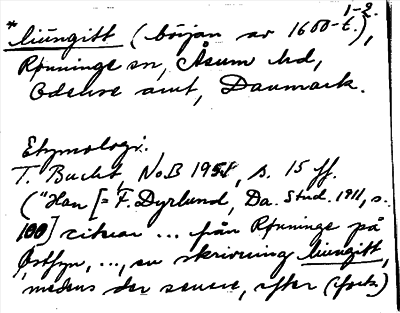 1-2.
*liungitt (början av 1600-t.),
Rønninge sn, Åsum hd,
Odense amt, Danmark.
Etymologi.
T. Bucht, NoB 1951, s. 15 ff.
("Han [= F. Dyrlund, Da. Stud. 1911, s.
100] citerar ... från Rønninge på
Østfyn, ..., en skrivning liungitt,
medens der senere, efter (fork.)